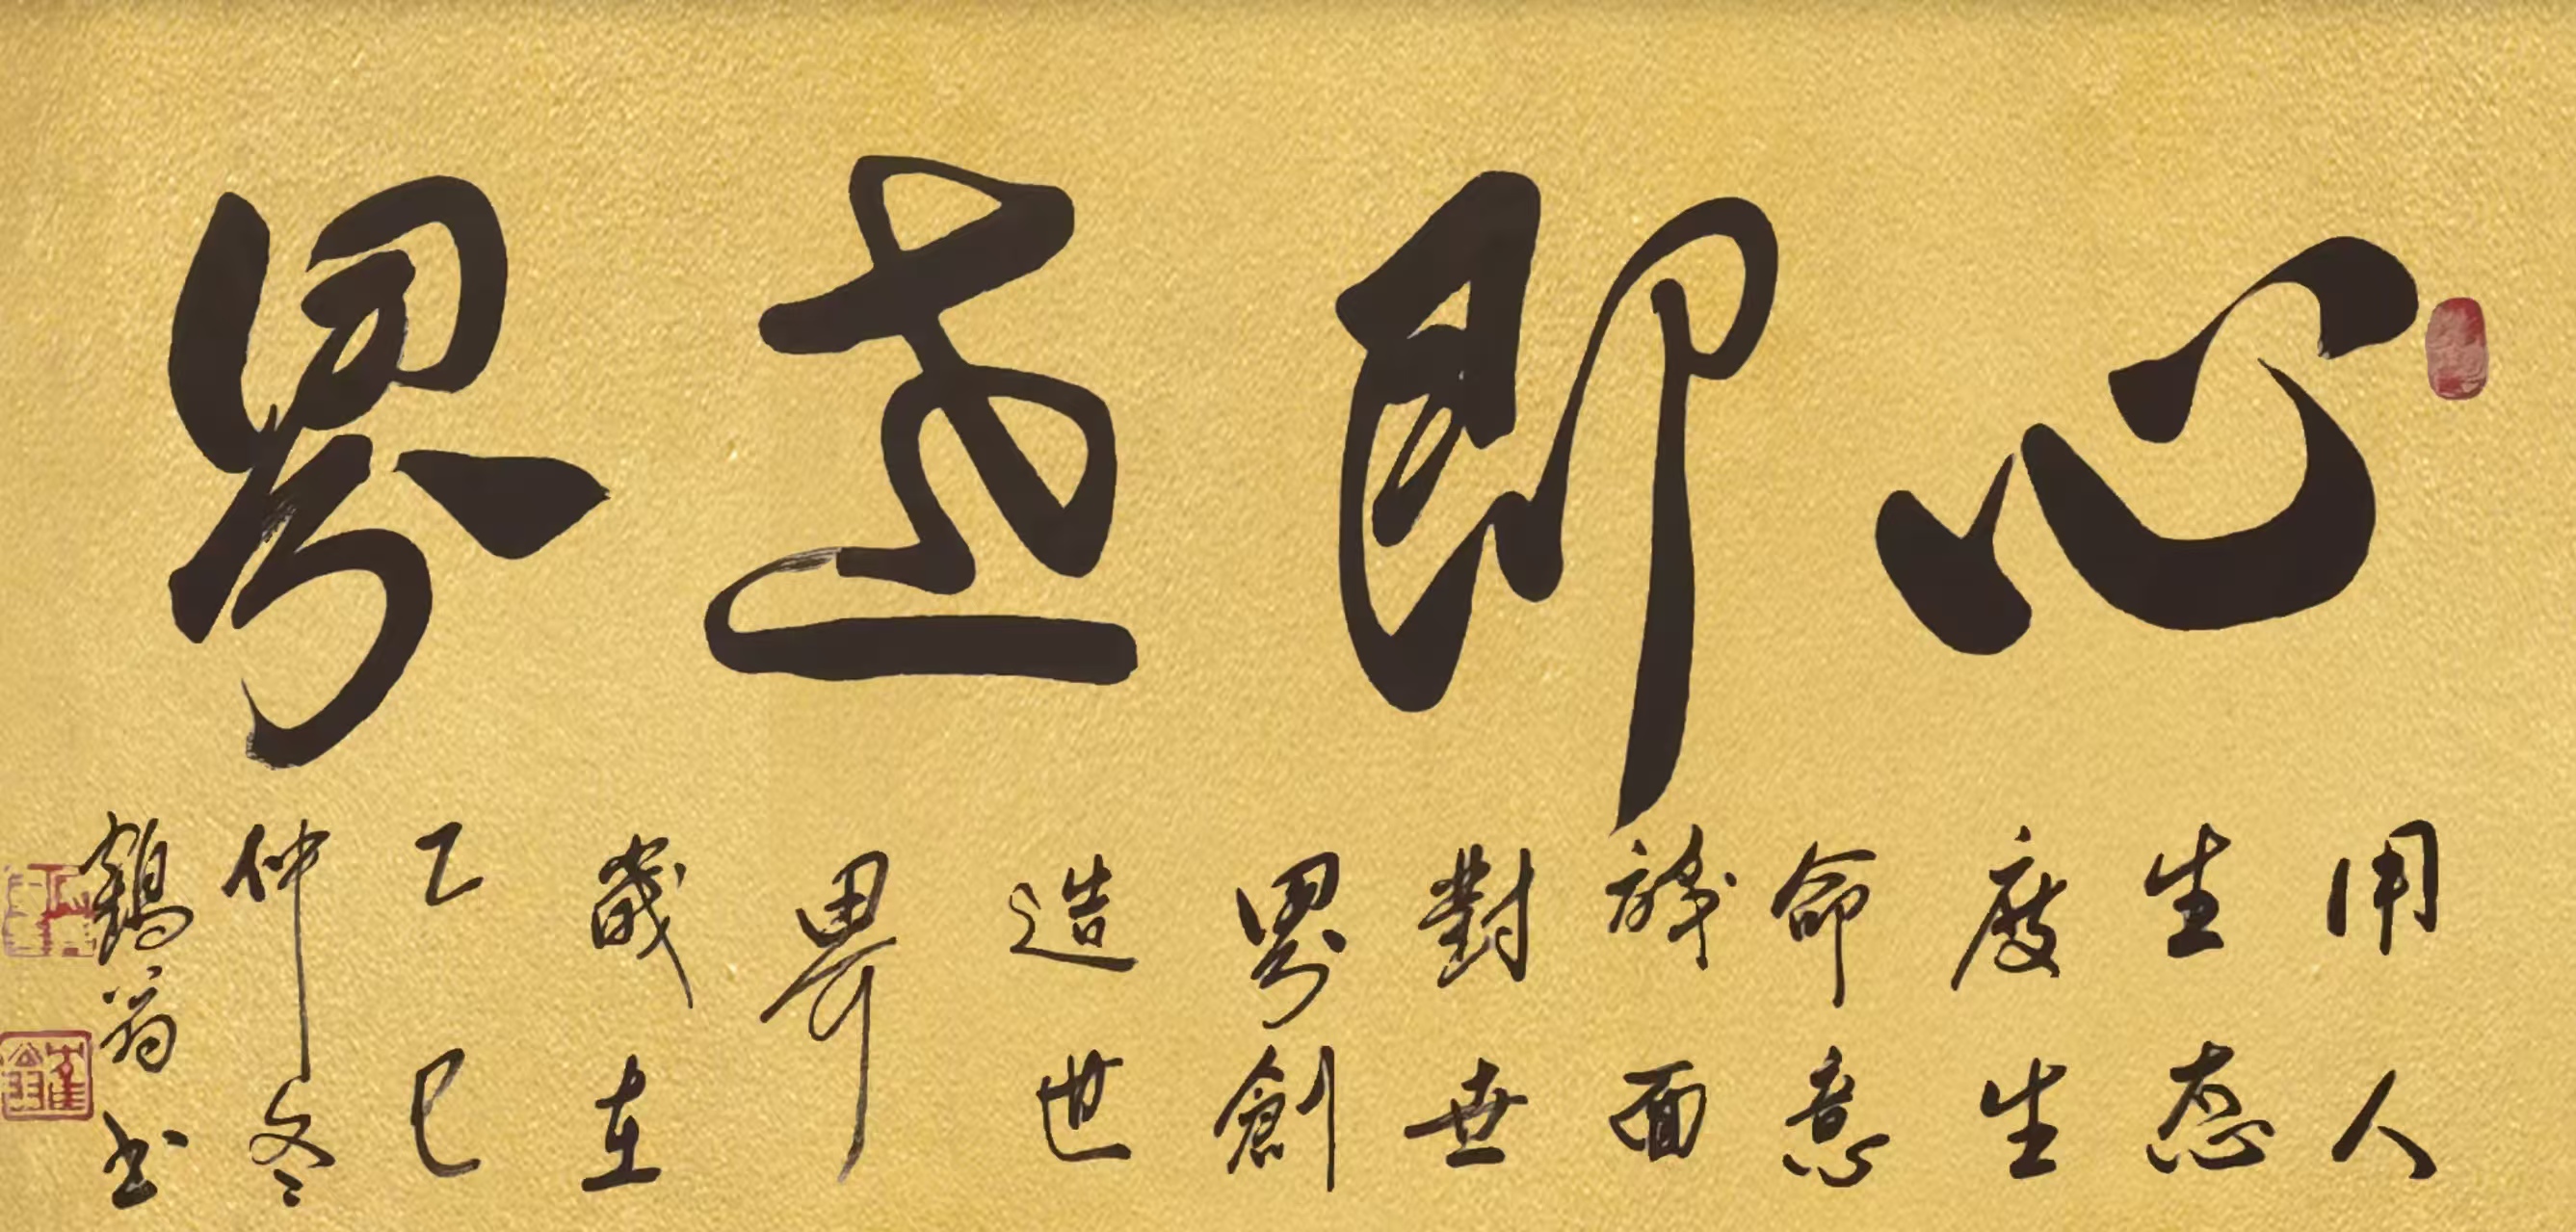 心即世界
用人
生态
度生
命意
識面
對世
界創
造世
界
歲在
乙巳
仲冬
鶴翁书